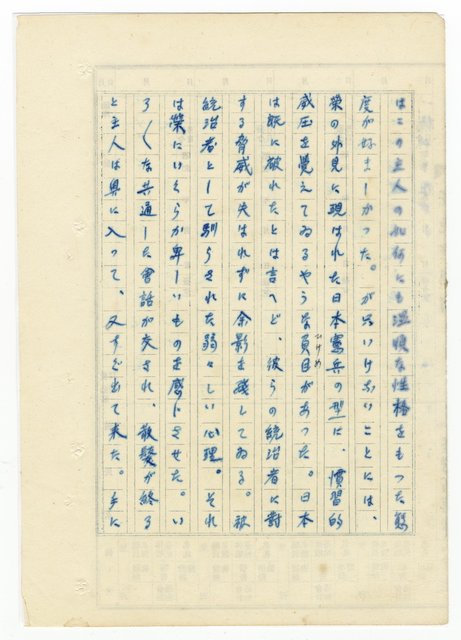 はこの主人の如何にも温順な性格をもつた態
度が好ましかつた。がいけないことには、
榮の外見に現はれた日本憲兵の型に、慣習的
威圧を覚えてゐるやうな負目があつた。日本
ひけめ
は既に敗れたとは言へど、彼らの統治者に對
する脅威が失はれずに余影を残してゐる。被
統治者として馴らされた弱々しい心理。それ
は榮にいくらか卑しいものを感じさせた。い
ろ〱な共通した會話が交され、散髪が終る
と主人は奥に入つて、又すぐ出て来た。手に